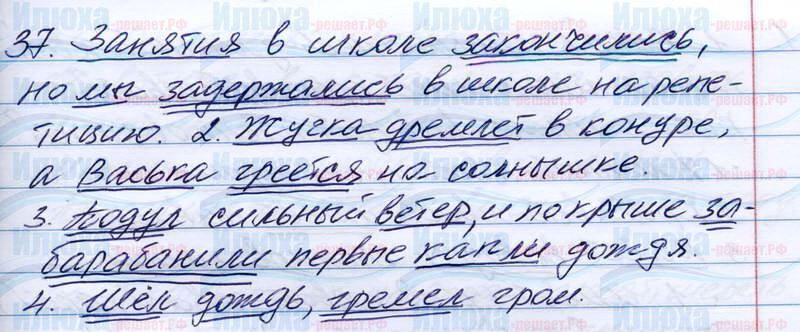 37. Занятия в школе закончились,
но мы задержались в школе на репе-
тицию. 2. Жучка дремлет в конуре,
а Васька греется на солнышке.
3. Подул сильный ветер, и по крыше за-
барабанили первые капли дождя.
4. Шёл дождь, гремел гром.